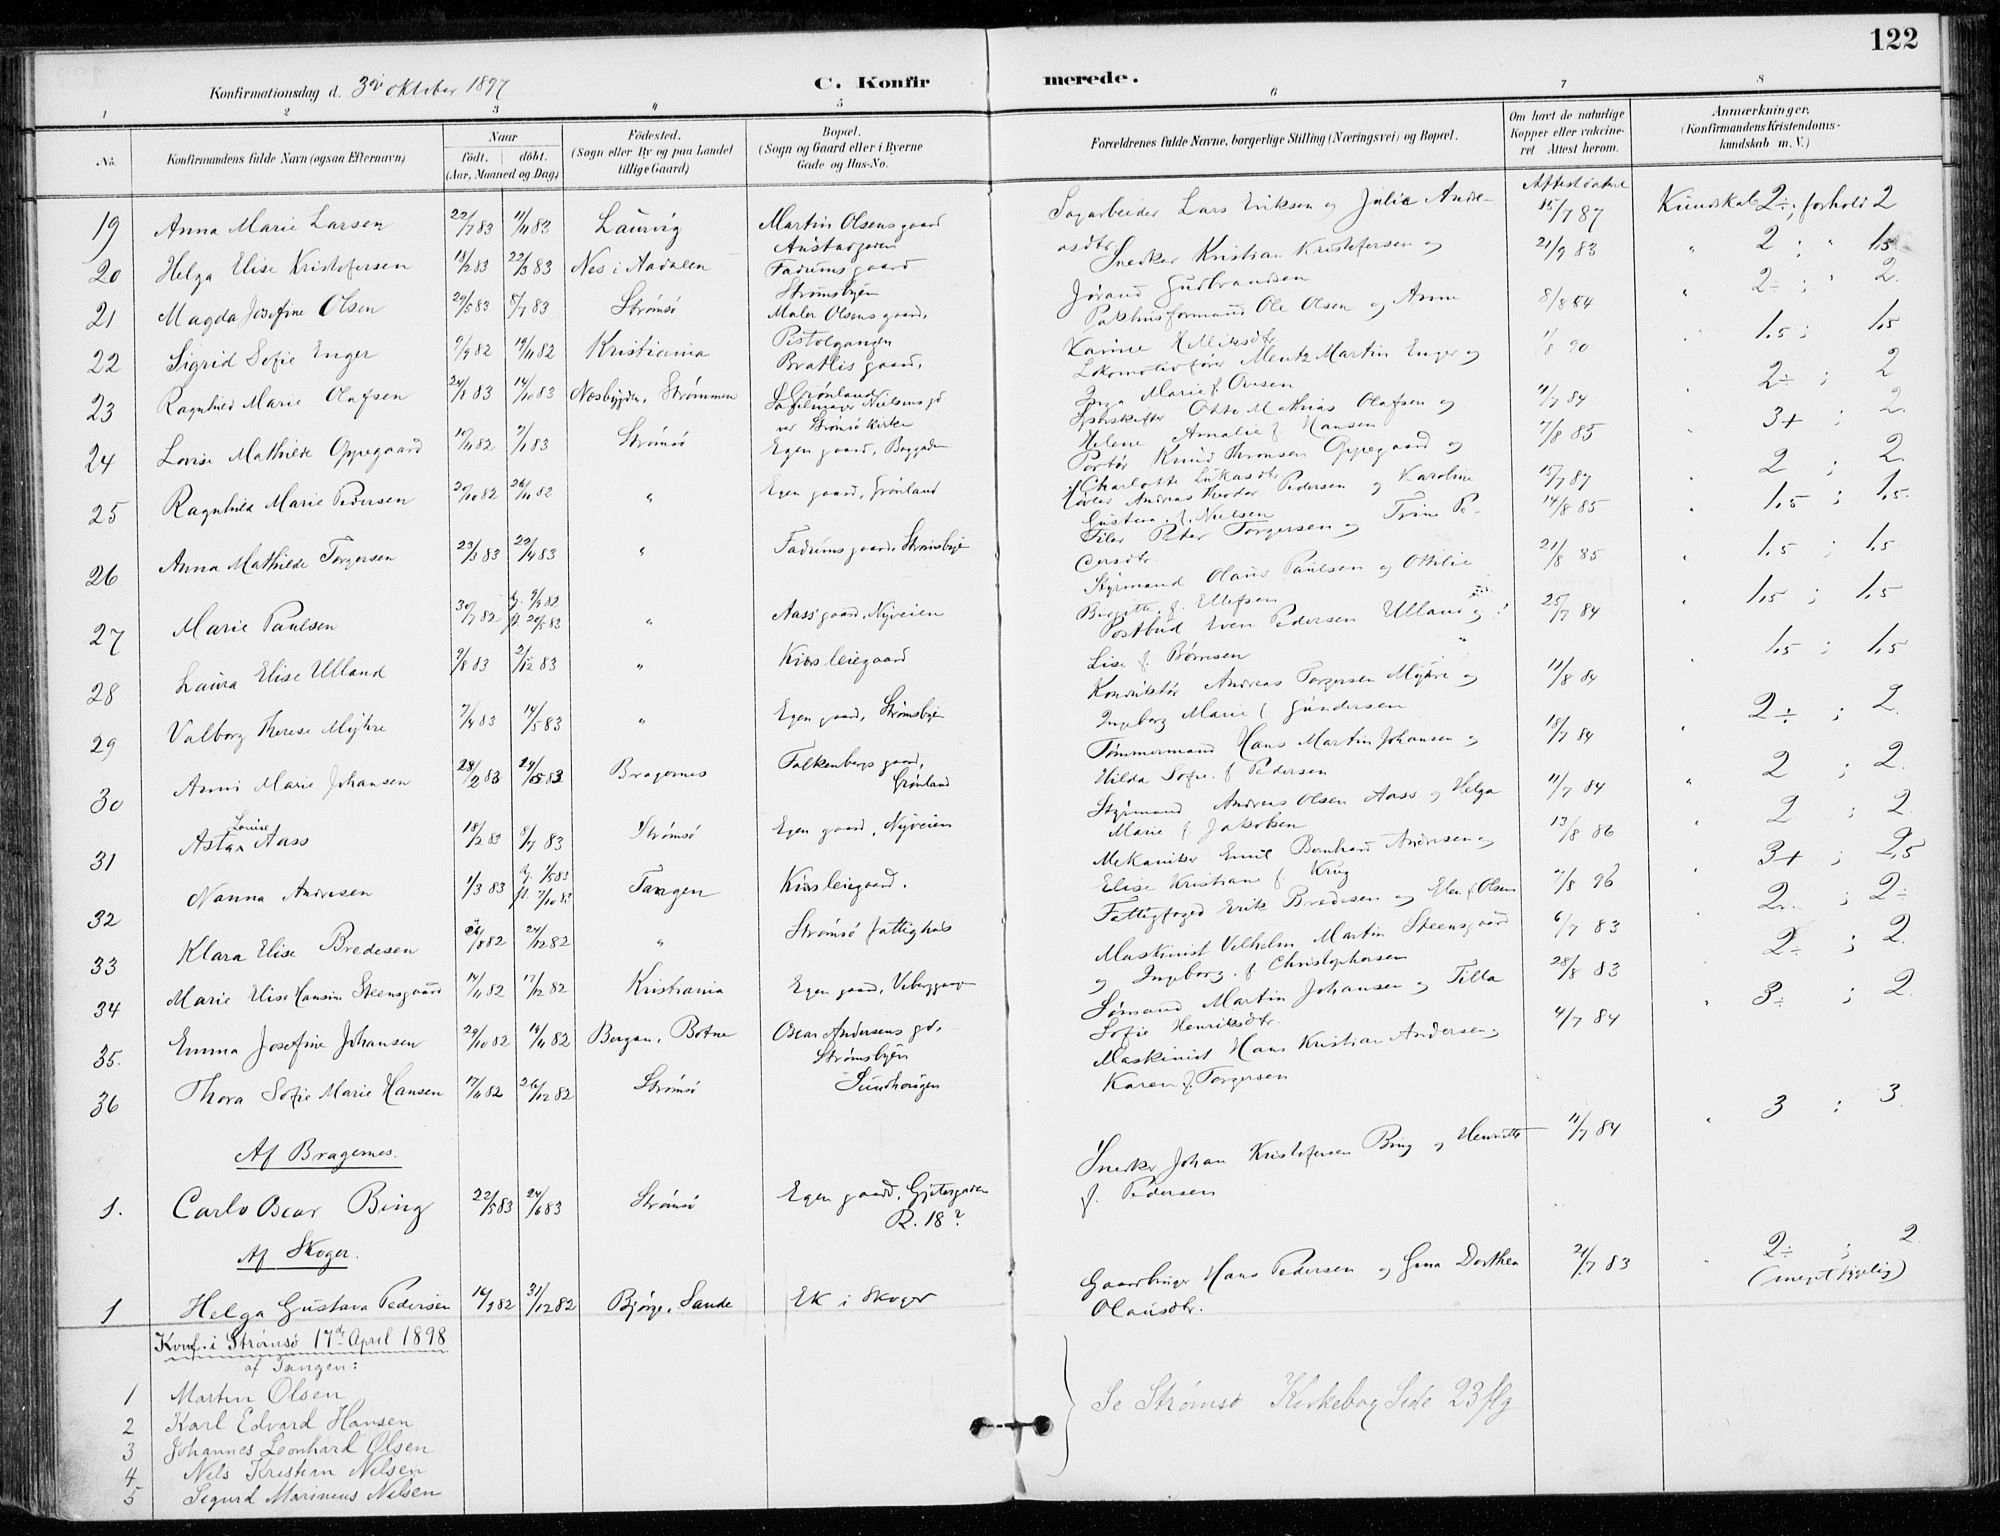 122
Konfirmationsdag d. 3die Oktober 1897
C. Konfirmerede.
1 2 3 4 5 6 7 8
No.
Konfirmandens fulde Navn (ogsaa Efternavn)
Naar
født. døbt.
(Aar, Maaned og Dag)
Fødested.
(Sogn eller By og paa Landet
tillige Gaard)
Bopæl.
(Sogn og Gaard eller i Byerne
Gade og Hus-No.
Forældrenes fulde Navne, borgerlige Stilling (Næringsvei) og Bopæl.
Om havt de naturlige
Kopper eller vakcine-
ret. Attest herom.
Anmærkninger,
(Konfirmandens Kristendoms-
kundskab m. V.)
19 Anna Marie Larsen 22/7 83 11/11 83 Laurvig Martin Olsens gaard
Sagarbeider Lars Eriksen og Julie Andre-
asdtr. 15/7 87 Kundskab 2÷; forhold 2
20 Helga Elise Kristofersen 13/2 83 22/3 83 Nes i Aadalen Fadums gaard
Strømsbyen
Snedker Kristian Kristofersen og
Jørand Gudbrandsen 21/9 83 " 2 ; " 1,5
21 Magda Josefine Olsen 29/5 83 8/7 83 Strømsø Maler Olsens gaard,
Pistolgangen
Pakhusformand Ole Olsen og Anne
Karine 8/8 84 " 2÷ ; " 2.
22 Sigrid Sofie Enger 9/9 82 19/11 82 Kristiania Bratlis gaard,
Grønland
Lokomotivfører Mentz Martin Enger og
Inga Marie f. Ovesen 1/8 90 1,5 ; 1,5
23 Ragnhild Marie Olafsen 24/8 83 14/10 83 Nesbygden, Strømmen Nielsens gd
ver Strømsø kirke
Otto Mathias Olafsen og
Helene Amalie f Hansen 11/7 84 2÷ ; 2
24 Lovise Mathilde Oppegaard 10/11 82 7/1 83 Strømsø Egen gaard, Baggaden
Portør Knud Thronsen Oppegaard og
Charlotte Lukasdtr. 7/8 85 3+ ; 2.
25 Ragnhild Marie Pedersen 20/10 82 26/11 82 " Egen gaard, Grønland
Andreas Theodor Pedersen og Karoline
Gustava f. Nielsen 15/7 87 2 ; 2.
26 Anna Mathilde Torgersen 23/3 83 22/4 83 " Fadums gaard, Strømsbyen
Filer Peter Torgersen og Trine Pe-
dersdtr. 14/8 85 1,5 ; 1,5.
27 Marie Paulsen 30/7 82 hj. 9/9 82
fl. 20/5 83 " Aass' gaard, Nyveien
Styrmand Olaus Paulsen og Ottilie
Birgitte f. Ellefsen 21/8 85 1,5 ; 1,5
28 Laura Elise Ulland 9/8 83 2/12 83 " Kiøs leiegaard
Postbud Even Pedersen Ulland og
Lise f. Børresen 25/7 84 1,5 ; 1,5
29 Valborg Therese Myhre 7/4 83 14/5 83 " Egen gaard, Strømsbyen
Konduktør Andreas Torgersen Myhre og
Ingeborg Marie f Gundersen 11/8 84 1,5 ; 1,5
30 Anni Marie Johansen 28/2 83 14/5 83 Bragernes Falkenbergs gaard,
Grønland
Tømmermand Hans Martin Johansen og
Hilda Sofie f Pedersen 18/7 84 2÷ ; 2.
31 Asta Louise Aass 18/2 83 8/7 83 Strømsø Egen gaard, Nyveien
Styrmand Andreas Olsen Aass og Helga
Marie f Jakobsen 11/7 84 " 2 ; 2.
32 Nanna Andresen 1/3 83 hj. 1/5 83
fl. 7/10 83 Tangen Kiøs leiegaard.
Mekaniker Emil Bernhard Andresen og
Elise Kristiane f. Krug 13/8 86 2 ; 2.
33 Klara Elise Bredesen 26/8 82 24/12 82 " Strømsø fattighus
Fattigfoged Erik Bredesen og Elen f. Olsen 7/8 96 3+ ; 2,5
34 Marie Elise Hansine Steensgaard 14/11 82 17/12 82 Kristiania Egen gaard,
Maskinist Vilhelm Martin Steensgaard
og Ingeborg f Christophersen 6/7 83 2÷ ; 2÷
35. Emma Josefine Johansen 29/10 82 19/11 82 Bergan, Botne Oscar Andersens gd.
Strømsbyen
Sømand Martin Johansen og Tilla
Sofie Henriksdtr. 28/8 83 2÷ ; 2.
36 Thora Sofie Marie Hansen 17/11 82 26/12 82 Strømsø Sundhaugen
Maskinist Hans Kristian Andersen og
Karen f. Torgersen 4/7 84 3÷ ; 2.
Af Bragernes.
1. Carlo Oscar Bing 22/5 83 24/6 83 Strømsø Egen gaard, Gjetergaden
R. 18?
Snedker Johan Kristofersen Bing og Henriette
f. Pedersen 11/7 84 " 3 ; 3.
Af Skoger.
1 Helga Gustava Pedersen 16/9 82 31/12 82 Bjørge, Sande Ek i Skoger
Gaardbruger Hans Pedersen og Gena Dorthea
Olausdtr. 21/7 83 2÷ ; 2
Konf. i Strømsø 17de April 1898
af Tangen:
1 Martin Olsen
2 Karl Edvard Hansen
3 Johannes Leonhard Olsen
4 Nils Kristian Nilsen
5 Sigurd Marinius Nilsen
Se Strømsø Kirkebog Side 23 flg